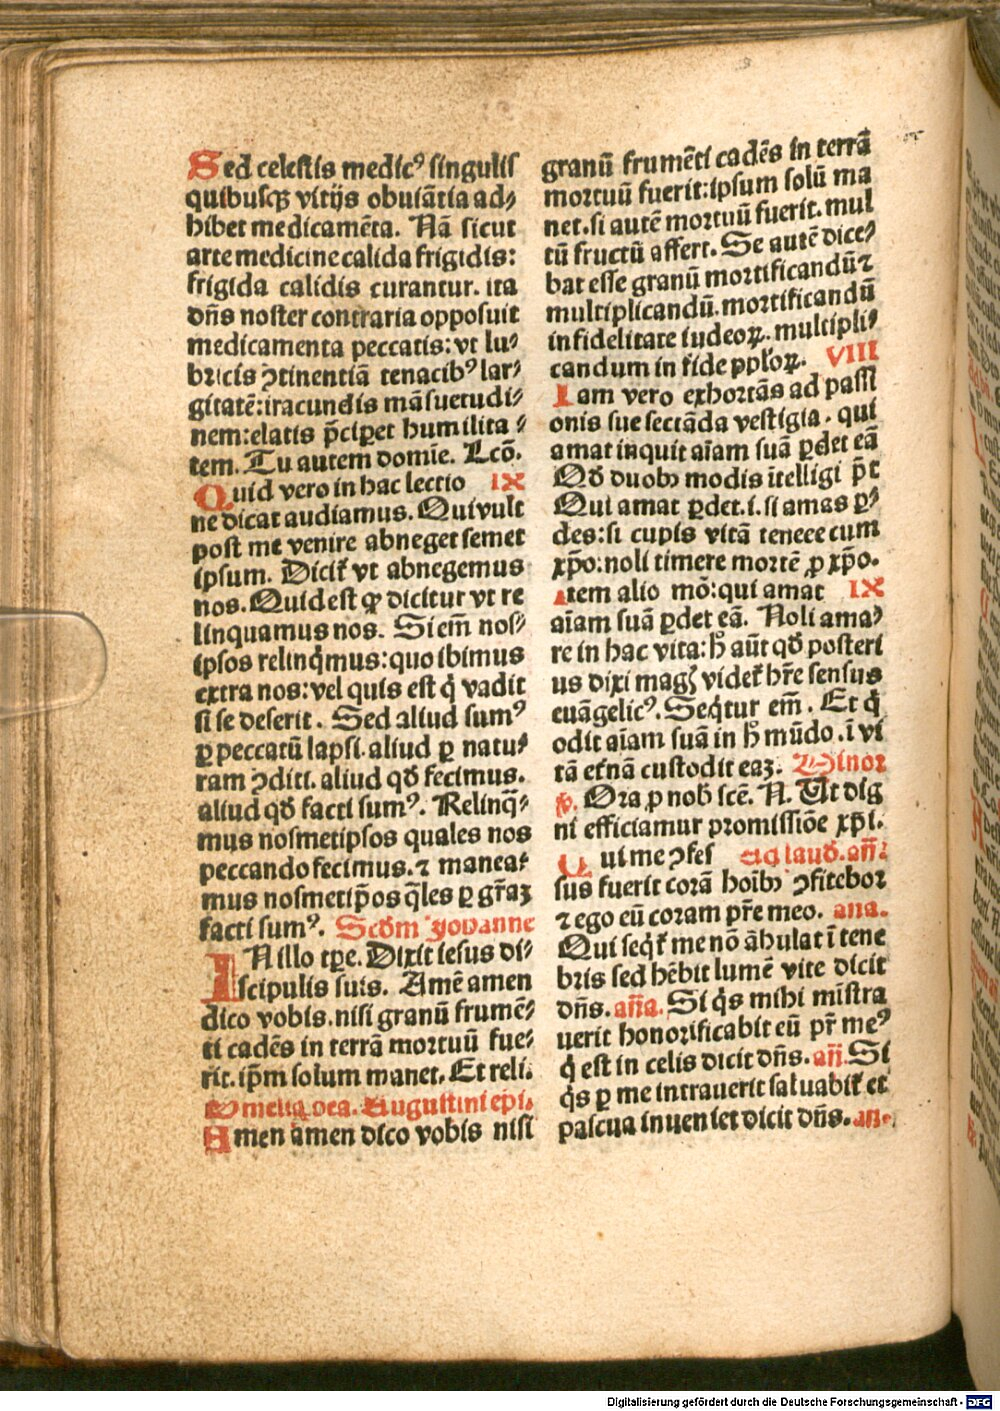 Sed celestis medicꝰ singulis
quibuscꝫ vitijs obuiãtia ad⸗
hibet medicamẽta. Nã sicut
arte medicine calida frigidis:
frigida calidis curantur. ita
dñs noster contraria opposuit
medicamenta peccatis: vt lu⸗
bricis ꝯtinentiã tenacibꝰ lar⸗
gitatẽ: iracundis mãsuetudi⸗
nem: elatis p̃cipet humilita⸗
tem. Tu autem domĩe. Lcõ.
Quid vero in hac lectio IX
ne dicat audiamus. Qui vult
post me venire abneget semet
ipsum. Dicit̃ vt abnegemus
nos. Quid est ꝙ dicitur vt re
linquamus nos. Si em̃ nos⸗
ipsos relinq̃mus: quo ibimus
extra nos: vel quis est q̃ vadit
si se deserit. Sed aliud sumꝰ
ꝑ peccatũ lapsi. aliud ꝑ natu⸗
ram ꝯditi. aliud qđ fecimus.
aliud qđ facti sumꝰ. Relinq̃⸗
mus nosmetipsos quales nos
peccando fecimus. ⁊ manea⸗
mus nosmetip̃os q̃les ꝑ gr̃aꝫ
facti sumꝰ. Scđm Johanne
IN illo tꝑe. Dixit iesus di⸗
scipulis suis. Amẽ amen
dico vobis. nisi granũ frumẽ⸗
ti cadẽs in terrã mortuũ fue⸗
rit. ip̃m solum manet. Et reli.
Omelia bea. Augustini ep̃i.
Amen amen dico vobis nisi
granũ frumẽti cadẽs in terrã
mortuũ fuerit: ipsum solũ ma
net. si autẽ mortuũ fuerit. mul
tũ fructũ affert. Se autẽ dice⸗
bat esse granũ mortificandũ ⁊
multiplicandũ. mortificandũ
infidelitate iudeoꝝ. multipli⸗
candum in fide pp̃loꝝ. VIII
Iam vero exhortãs ad passi
onis sue sectãda vestigia. qui
amat inquit aĩam suã ꝑdet eã
Qđ duobꝫ modis ĩtelligi p̃t
Qui amat ꝑdet. i. si amas ꝑ⸗
des: si cupis vitã tenere cum
xp̃o: noli timere mortẽ ꝓ xp̃o.
Item alio mõ: qui amat IX
aĩam suã ꝑdet eã. Noli ama⸗
re in hac vita: h̃ aũt qđ posteri
us dixi magꝭ videt̃ hr̃e sensus
euãgelicꝰ. Seq̃tur em̃. Et q̃
odit aĩam suã in h̃ mũdo. ĩ vi
tã et̃nã custodit eaꝫ. Minor
v̾. Ora ꝓ nob̃ sc̃e. N. Ut dig
ni efficiamur promissiõe xp̃i.
Qui me ꝯfes ad lauđ. añ̃.
sus fuerit corã hoĩbꝫ ꝯfitebor
⁊ ego eũ coram pr̃e meo. ana.
Qui seq̃t̃ me nõ ãbulat ĩ tene
bris sed hẽbit lumẽ vite dicit
dñs. añ̃a. Si q̃s mihi mĩstra
uerit honorificabit eũ pr̃ meꝰ
q̃ est in celis dicit dñs. añ̃. Si
q̃s ꝑ me intrauerit saluabit̃ et
pascua inueniet dicit dñs. an.
Digitalisierung gefördert durch die Deutsche Forschungsgemeinschaft - DFG